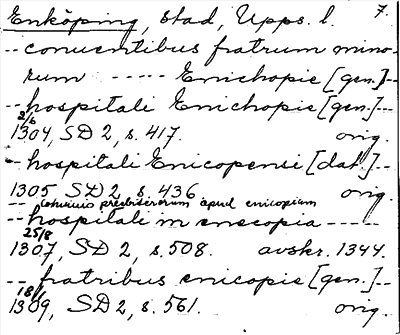 Enköping, stad, Upps. l. 7.
-- conventibus fratrum mino-
rum ----- Enichopie [gen.]--
-- hospitali Enichopie [gen.]--
2/6
1304, SD 2, s. 417. orig.
-- hospitali Enicopensi [dat.]--
1305 SD 2, s. 436 orig.
-- conuiuio presbiterorum apud enicopiam
-- hospitali in enecopia -----
25/8
1307, SD 2, s. 508. avskr. 1344.
-- fratribus enicopie [gen.]--
1309, SD 2, s. 561. orig.